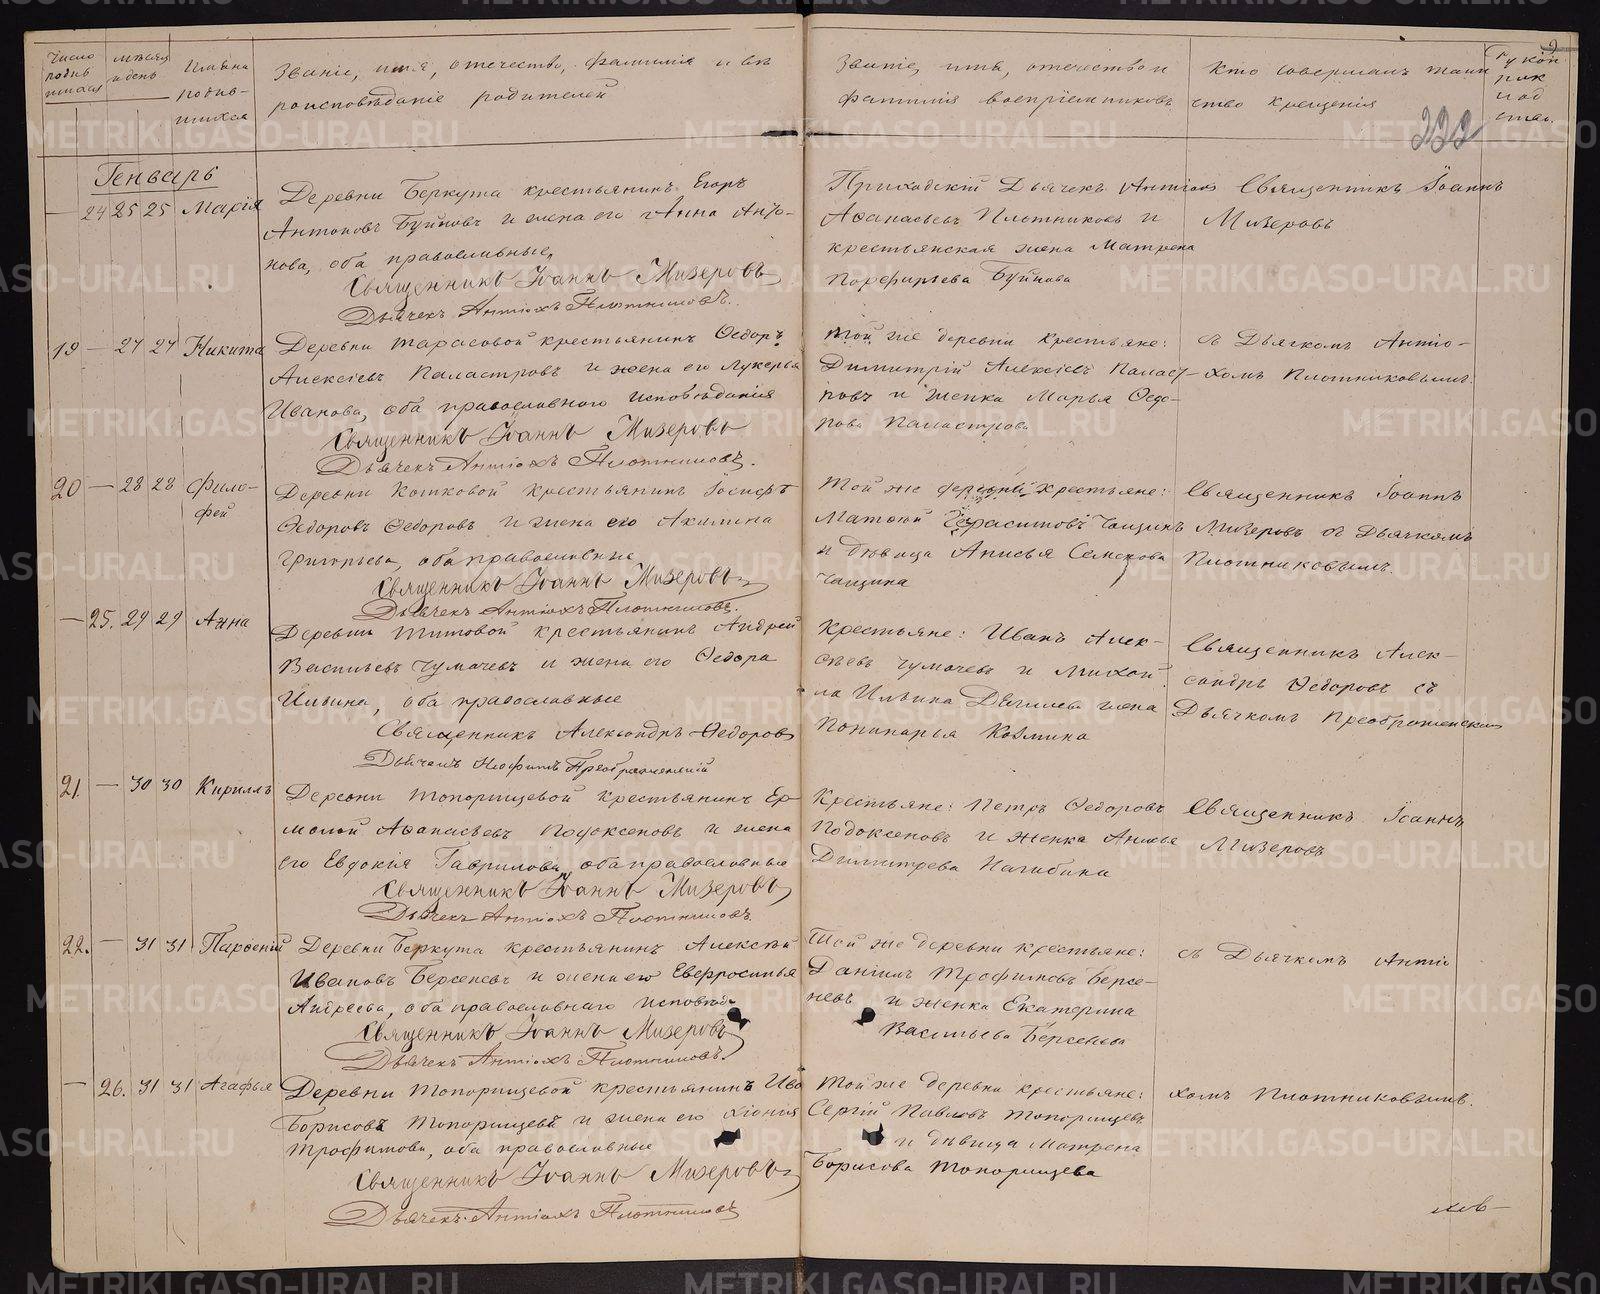 Число родив шихся
мѣсяц и день
Имяна родив- шихся
Званіе, имя, отечество, фамилія и вѣ
роисповѣданіе родителей
Званіе, имя, отечество и
фамилія воспріемниковъ
Кто совершалъ таин
ство крещенія
Рукоп
под
Генварь
24 25 25 Марія
Деревни Беркута крестьянинъ Егоръ
Антоновъ Буйновъ и жена его Анна Анто-
нова, оба православные,
Священникъ Іоаннъ Мизеровъ
Дьячекъ Антіохъ Плотниковъ.
Приходскій Дьячекъ Антіохъ
Афанасьевъ Плотниковъ и
крестьянская жена Матрена
Порфирьева Буйнова
Священникъ Іоаннъ
Мизеровъ
19 — 27 27 Никита
Деревни Тарасовой крестьянинъ Ѳедоръ
Алексіевъ Паластровъ и жена его Лукерья
Иванова, оба православнаго исповѣданія
Священникъ Іоаннъ Мизеровъ
Дьячекъ Антіохъ Плотниковъ.
Той же деревни крестьяне:
Димитрій Алексіевъ Паласт-
ровъ и женка Марья Ѳедо-
рова Паластрова
съ Дьячкомъ Антіо-
хомъ Плотниковымъ.
20 — 28 28 Фило-
фей
Деревни Кошковой крестьянинъ Іосифъ
Ѳедоровъ Ѳедоровъ и жена его Акилина
Григорьева, оба православные
Священникъ Іоаннъ Мизеровъ
Дьячекъ Антіохъ Плотниковъ.
Той же деревни крестьяне:
Матфій Герасимовъ Чащинъ
и дѣвица Анисья Семенова
Чащина
Священникъ Іоаннъ
Мизеровъ съ Дьячкомъ
Плотниковымъ.
— 25. 29 29 Анна
Деревни Титовой крестьянинъ Андрей
Васильевъ Чумачевъ и жена его Ѳедора
Ильина, оба православные
Священникъ Александръ Ѳедоровъ
Дьячекъ Неофитъ Преображенскій
Крестьяне: Иванъ Алек-
сѣевъ Чумачевъ и Михай
ла Ильина жена
Козмина
Священникъ Алек-
сандръ Ѳедоровъ съ
Дьячкомъ Преображенским
21 — 30 30 Кириллъ
Деревни Топорищевой крестьянинъ Ер-
молай Афанасьевъ Подоксеновъ и жена
его Евдокія Гаврилова, оба православные
Священникъ Іоаннъ Мизеровъ
Дьячекъ Антіохъ Плотниковъ.
Крестьяне: Петръ Ѳедоровъ
Подоксеновъ и женка Анисья
Димитрева Нагибина
Священникъ Іоаннъ
Мизеровъ
22. — 31 31 Парѳеній
Деревни Беркута крестьянинъ Алексѣй
Ивановъ Берсеневъ и жена его Евфросинья
Андреева, оба православнаго исповѣда
Священникъ Іоаннъ Мизеровъ
Дьячекъ Антіохъ Плотниковъ.
Той же деревни крестьяне:
Даніилъ Трофимовъ Берсе-
невъ и женка Екатерина
Васильева Берсенева
съ Дьячкомъ Антіо
— 26. 31 31 Агафья
Деревни Топорищевой крестьянинъ Ива
Борисовъ Топорищевъ и жена его Хіонія
Трофимова, оба православные
Священникъ Іоаннъ Мизеровъ
Дьячекъ Антіохъ Плотниковъ
Той же деревни крестьяне:
Сергій Павловъ Топорищевъ
и дѣвица Матрена
Борисова Топорищева
хомъ Плотниковымъ.
METRIKI.GASO-URAL.RU